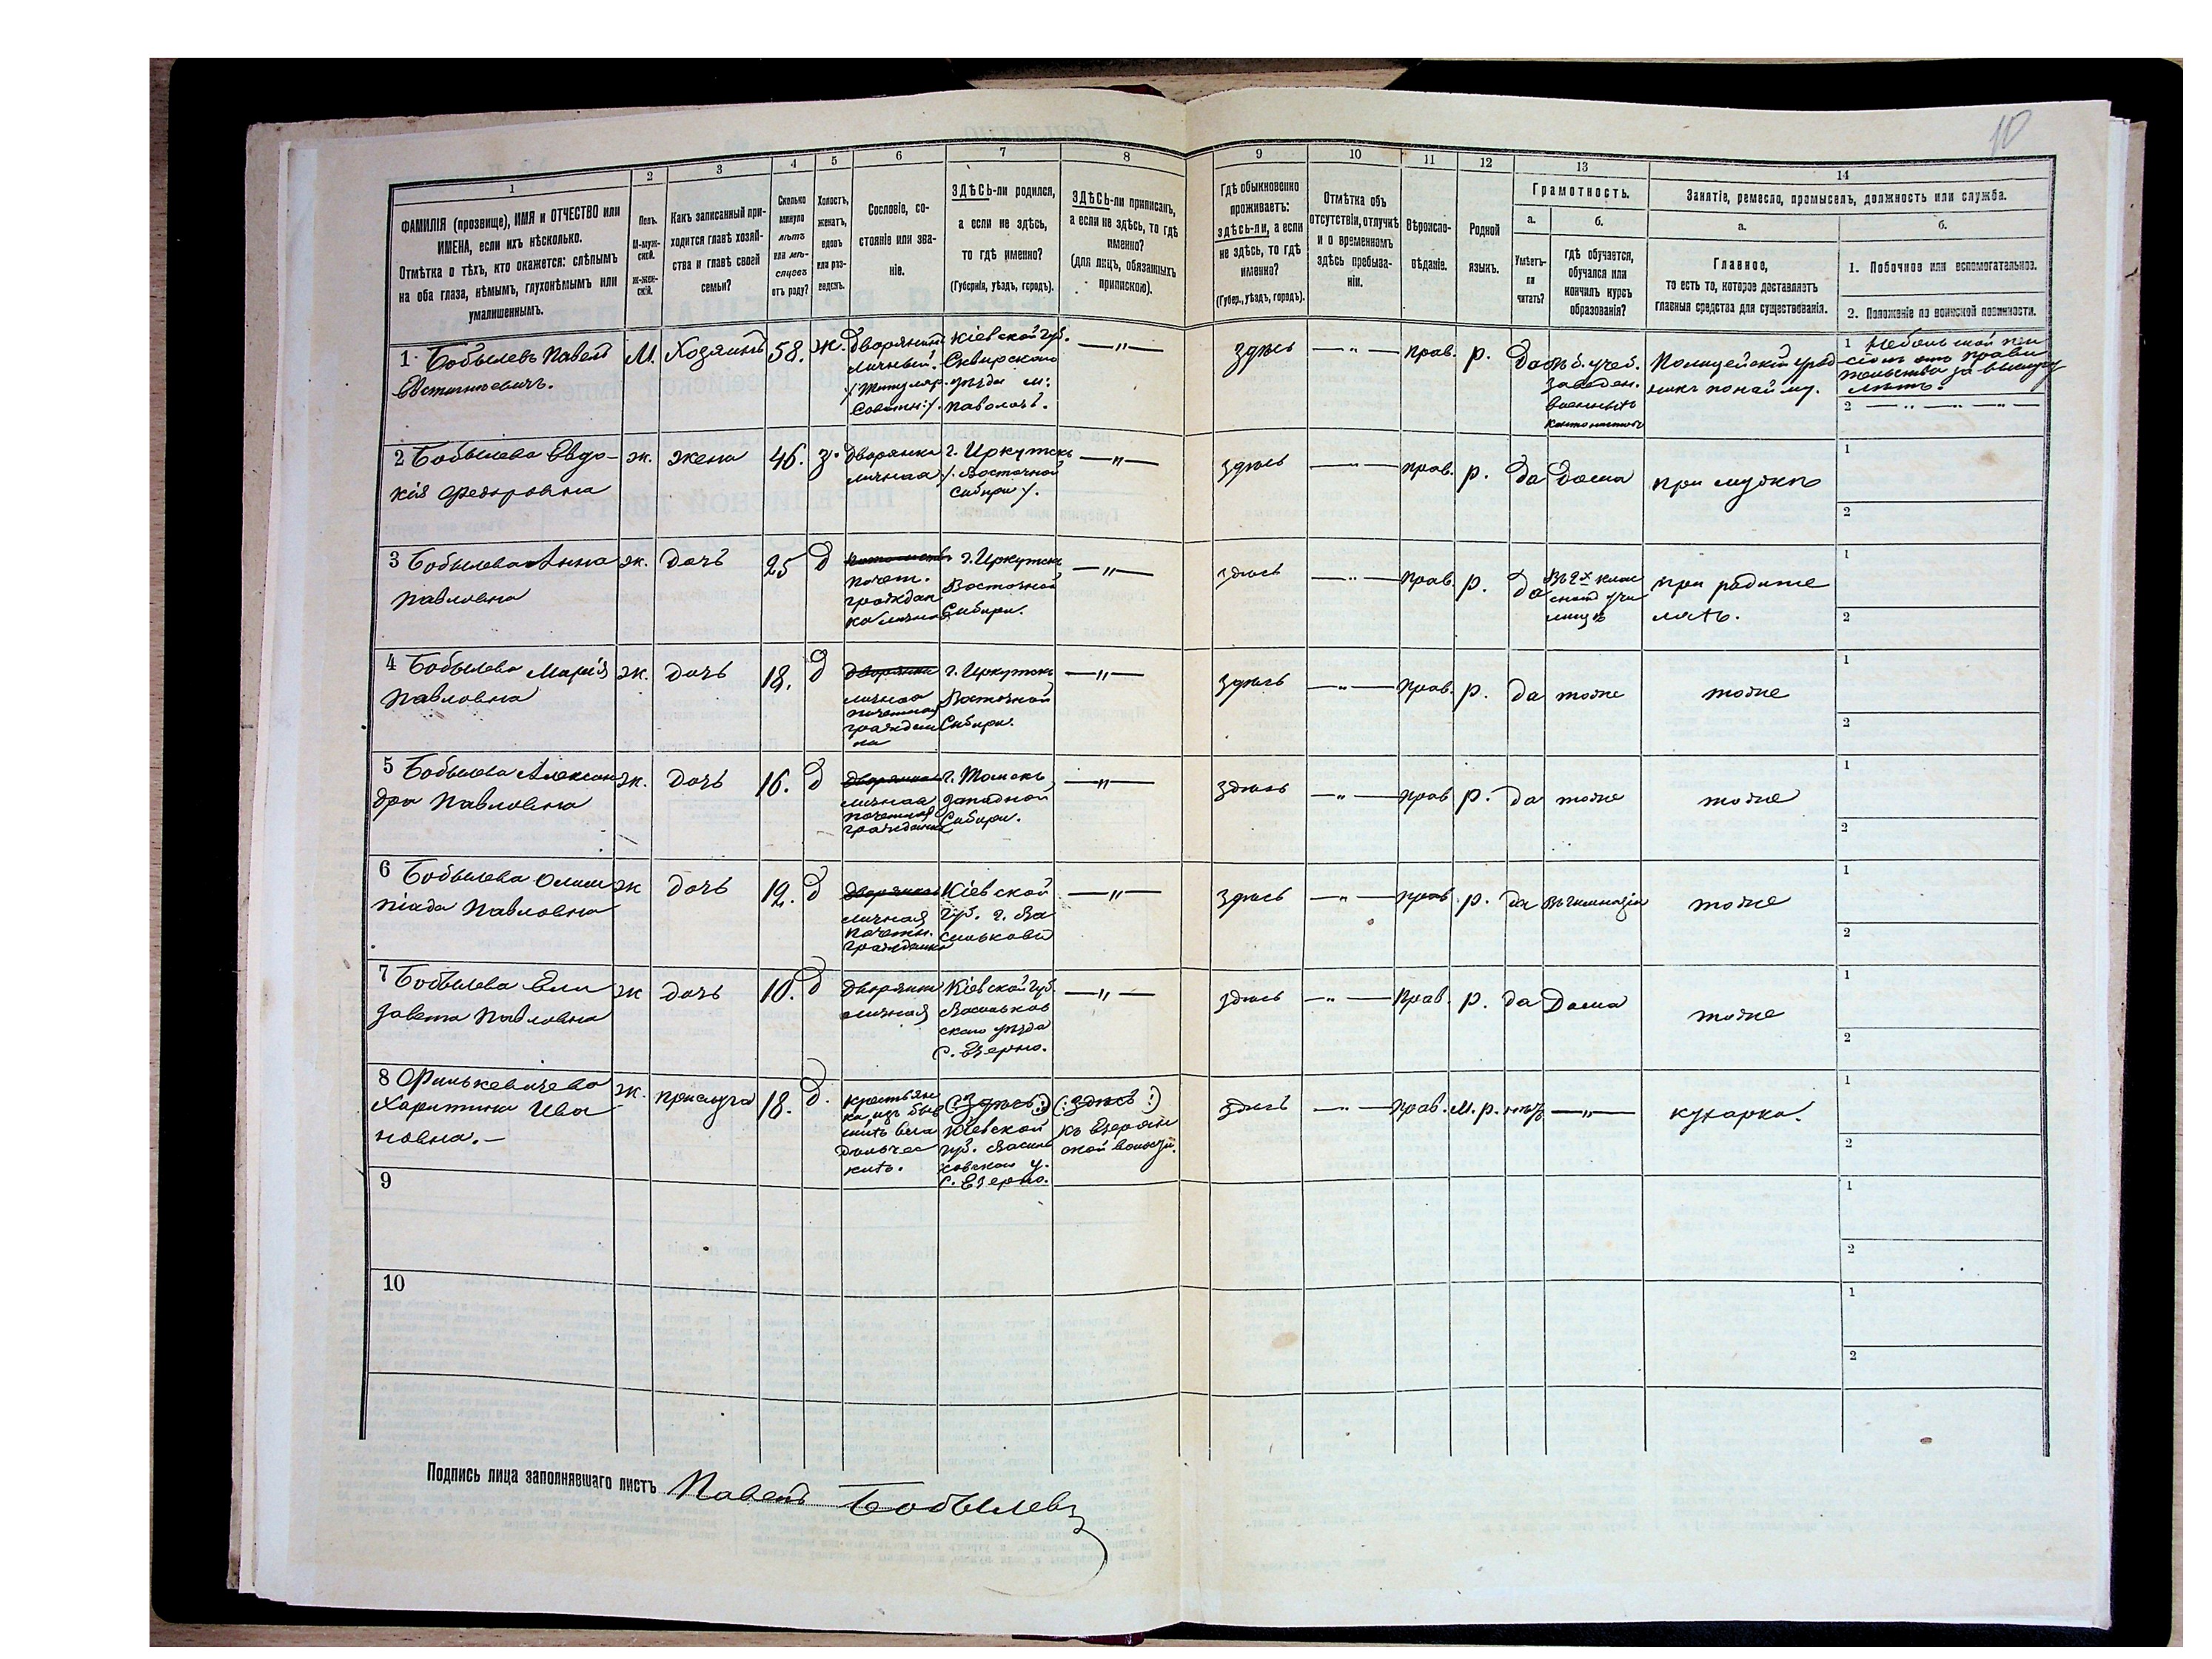 10
1
2
3
4
5
6
7
8
9
10
11
12
13
14
ФАМИЛІЯ (прозвище), ИМЯ и ОТЧЕСТВО или
ИМЕНА, если ихъ нѣсколько.
Отмѣтка о тѣхъ, кто окажется: слѣпымъ
на оба глаза, нѣмымъ, глухонѣмымъ или
умалишеннымъ.
Полъ.
М-муж-
ской.
Ж-жен-
скій.
Какъ записанный при-
ходится главѣ хозяй-
ства и главѣ своей
семьи?
Сколько
минуло
лѣтъ
или мѣ-
сяцевъ
отъ роду?
Холостъ,
женатъ,
вдовъ
или раз-
веденъ.
Сословіе, со-
стояніе или зва-
ніе.
ЗДѢСЬ-ли родился,
а если не здѣсь,
то гдѣ именно?
(Губернія, уѣздъ, городъ).
ЗДѢСЬ-ли приписанъ,
а если не здѣсь, то гдѣ
именно?
(для лицъ, обязанныхъ
припискою).
Гдѣ обыкновенно
проживаетъ:
здѣсь-ли, а если
не здѣсь, то гдѣ
именно?
(Губер., уѣздъ, городъ).
Отмѣтка объ
отсутствіи, отлучкѣ
и о временномъ
здѣсь пребыва-
ніи.
Вѣроиспо-
вѣданіе.
Родной
языкъ.
Грамотность.
а.
б.
Умѣетъ-
ли
читать?
Гдѣ обучается,
обучался или
кончилъ курсъ
образованія?
Занятіе, ремесло, промыселъ, должность или служба.
а.
б.
Главное,
то есть то, которое доставляетъ
главныя средства для существованія.
1. Побочное или вспомогательное.
2. Положеніе по воинской повинности.
1 Бобылевъ Павелъ
М.
Хозяинъ
58.
ж.
Дворянинъ
личный.
Кіевской губ.
Сквирскаго
уѣзда м.
Паволочь.
—"—
здѣсь
—"—
прав.
р.
Да
учеб.
заведен.
военныхъ
кантонистовъ
Полицейскій уряд
никъ по найму.
1
2 —"—"—
2 Бобылева Евдо-
кія Федоровна
ж.
жена
46.
з.
Дворянка
личная
г. Иркутскъ
Восточной
Сибири
—"—
здѣсь
—"—
прав.
р.
да
Дома
при мужѣ
1
2
3 Бобылева Анна
Павловна
ж.
дочь
25
д
почет.
граждан
ка личная
г. Иркутскъ
Восточной
Сибири.
—"—
здѣсь
—"—
прав.
р.
да
Въ 2х клас
сномъ учи
лищѣ
при родите
ляхъ.
1
2
4 Бобылева Марія
Павловна
ж.
дочь
18.
д
личная
почетная
граждан
ка
г. Иркутскъ
Восточной
Сибири.
—"—
здѣсь
—"—
прав.
р.
да
тоже
тоже
1
2
5 Бобылева Алексан
дра Павловна
ж.
дочь
16.
д
личная
почетная
гражданка
г. Томскъ
Западной
Сибири.
—"—
здѣсь
—"—
прав
р.
да
тоже
тоже
1
2
6 Бобылева Олим
піада Павловна
ж
дочь
12.
д
личная
почетн.
гражданка
Кіевской
губ. г. Ва
сильковъ
—"—
здѣсь
—"—
прав
р.
да
въ гимназіи
тоже
1
2
7 Бобылева Ели
завета Павловна
ж
дочь
10.
д
дворянка
личная
Кіевской губ.
Васильков
скаго уѣзда
с. Езерно.
—"—
здѣсь
—"—
прав.
р.
да
Дома
тоже
1
2
8 Финькевичева
Харитина Ива
новна.—
ж.
прислуга
18.
д.
крестьян
ка изъ быв
шихъ вла
дѣльчес
кихъ.
(:здѣсь:)
Кіевской
губ. Василь
ковскаго у.
с. Езерно.
(:здѣсь:)
къ Езерян
ской волости.
здѣсь
—"—
прав.
м. р.
нѣтъ
—"—
кухарка.
1
2
9
1
2
10
1
2
Подпись лица заполнявшаго листъ Павелъ Бобылевъ